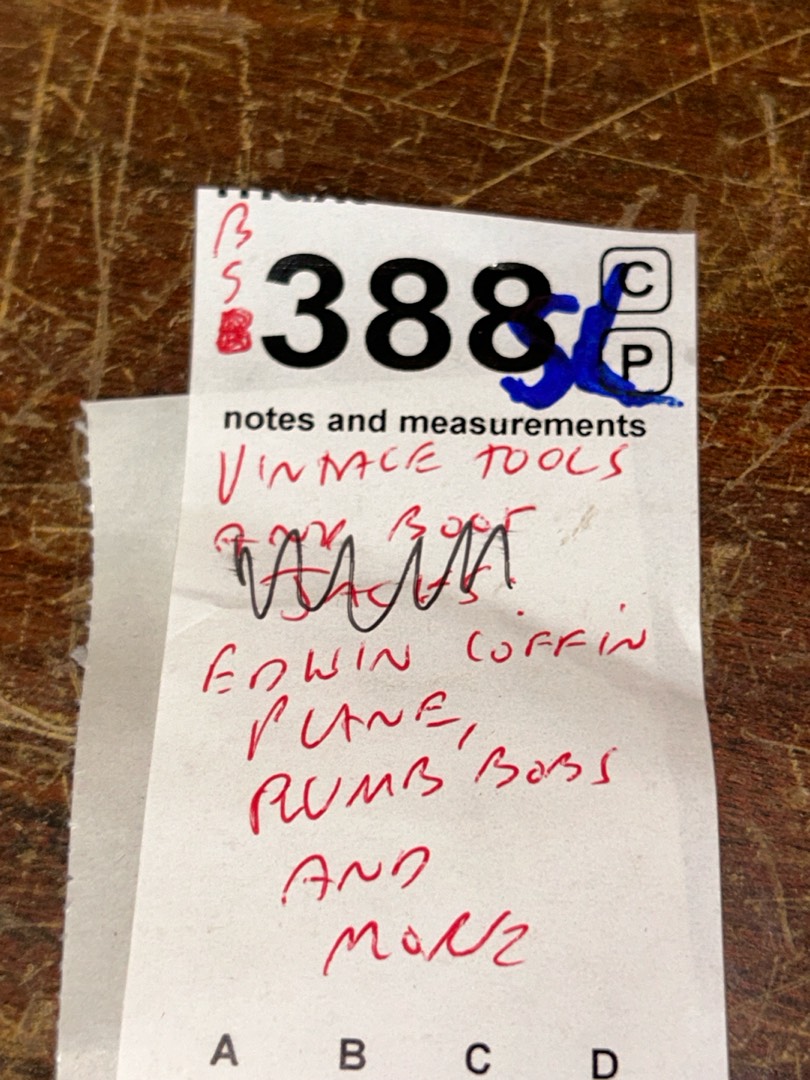 B
S
B
388
SL
C
P
notes and measurements
VINTAGE TOOLS
BOOT
JACKS.
EDWIN COFFIN
PLANE,
PLUMB BOBS
AND
MORE
A B C D